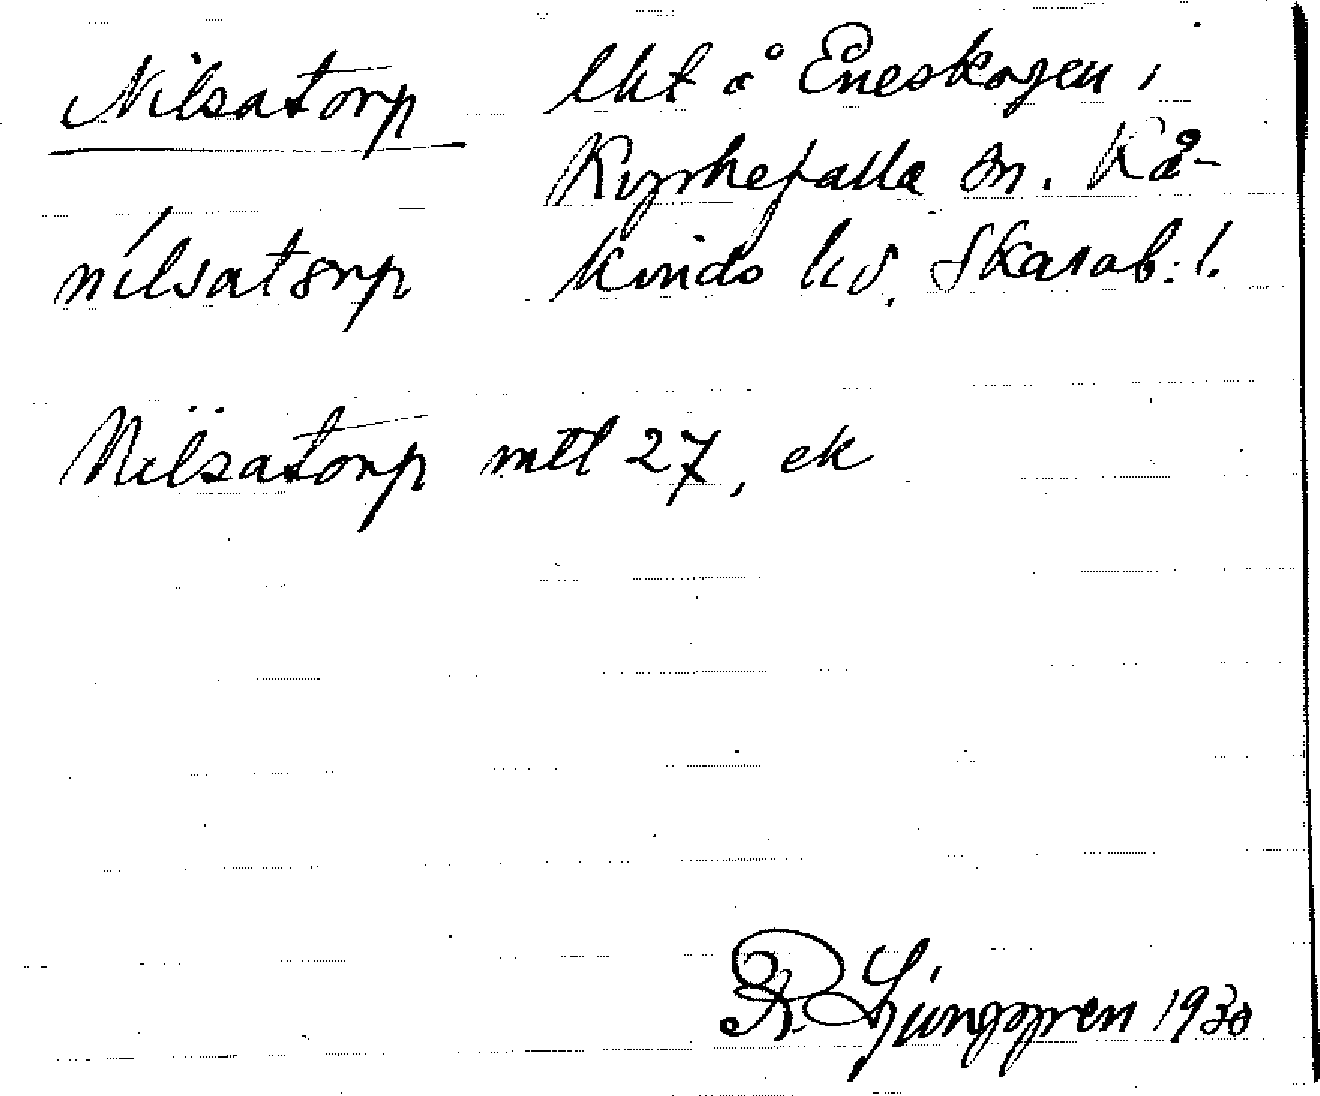 Nilsatorp lht å Eneskogen i
Kyrkefalla sn. Kå-
nilsatorp kinds hd. Skarab. l.
Nilsatorp mtl 27, ek
R Ljunggren 1930